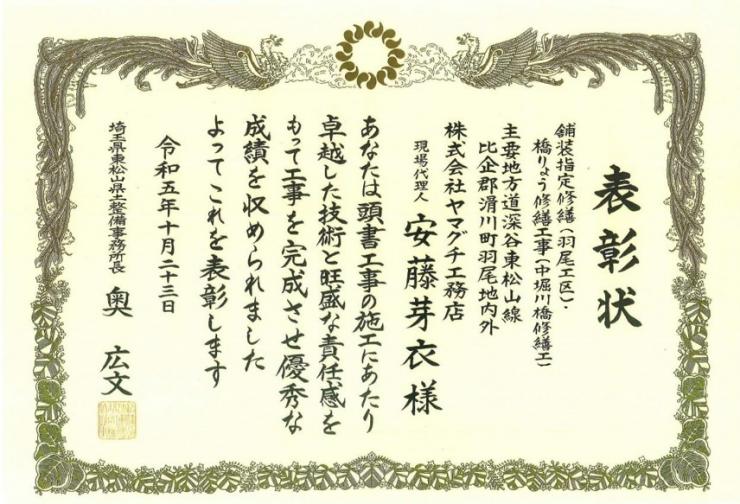 表彰状
舗装指定修繕(羽尾工区)・
橋りょう修繕工事(中堀川橋修繕工)
主要地方道深谷東松山線
比企郡滑川町羽尾地内外
株式会社ヤマグチ工務店
現場代理人 安藤芽衣様
あなたは頭書工事の施工にあたり
卓越した技術と旺盛な責任感を
もって工事を完成させ優秀な
成績を収められました
よってこれを表彰します
令和五年十月二十三日
埼玉県東松山県土整備事務所長 奥広文